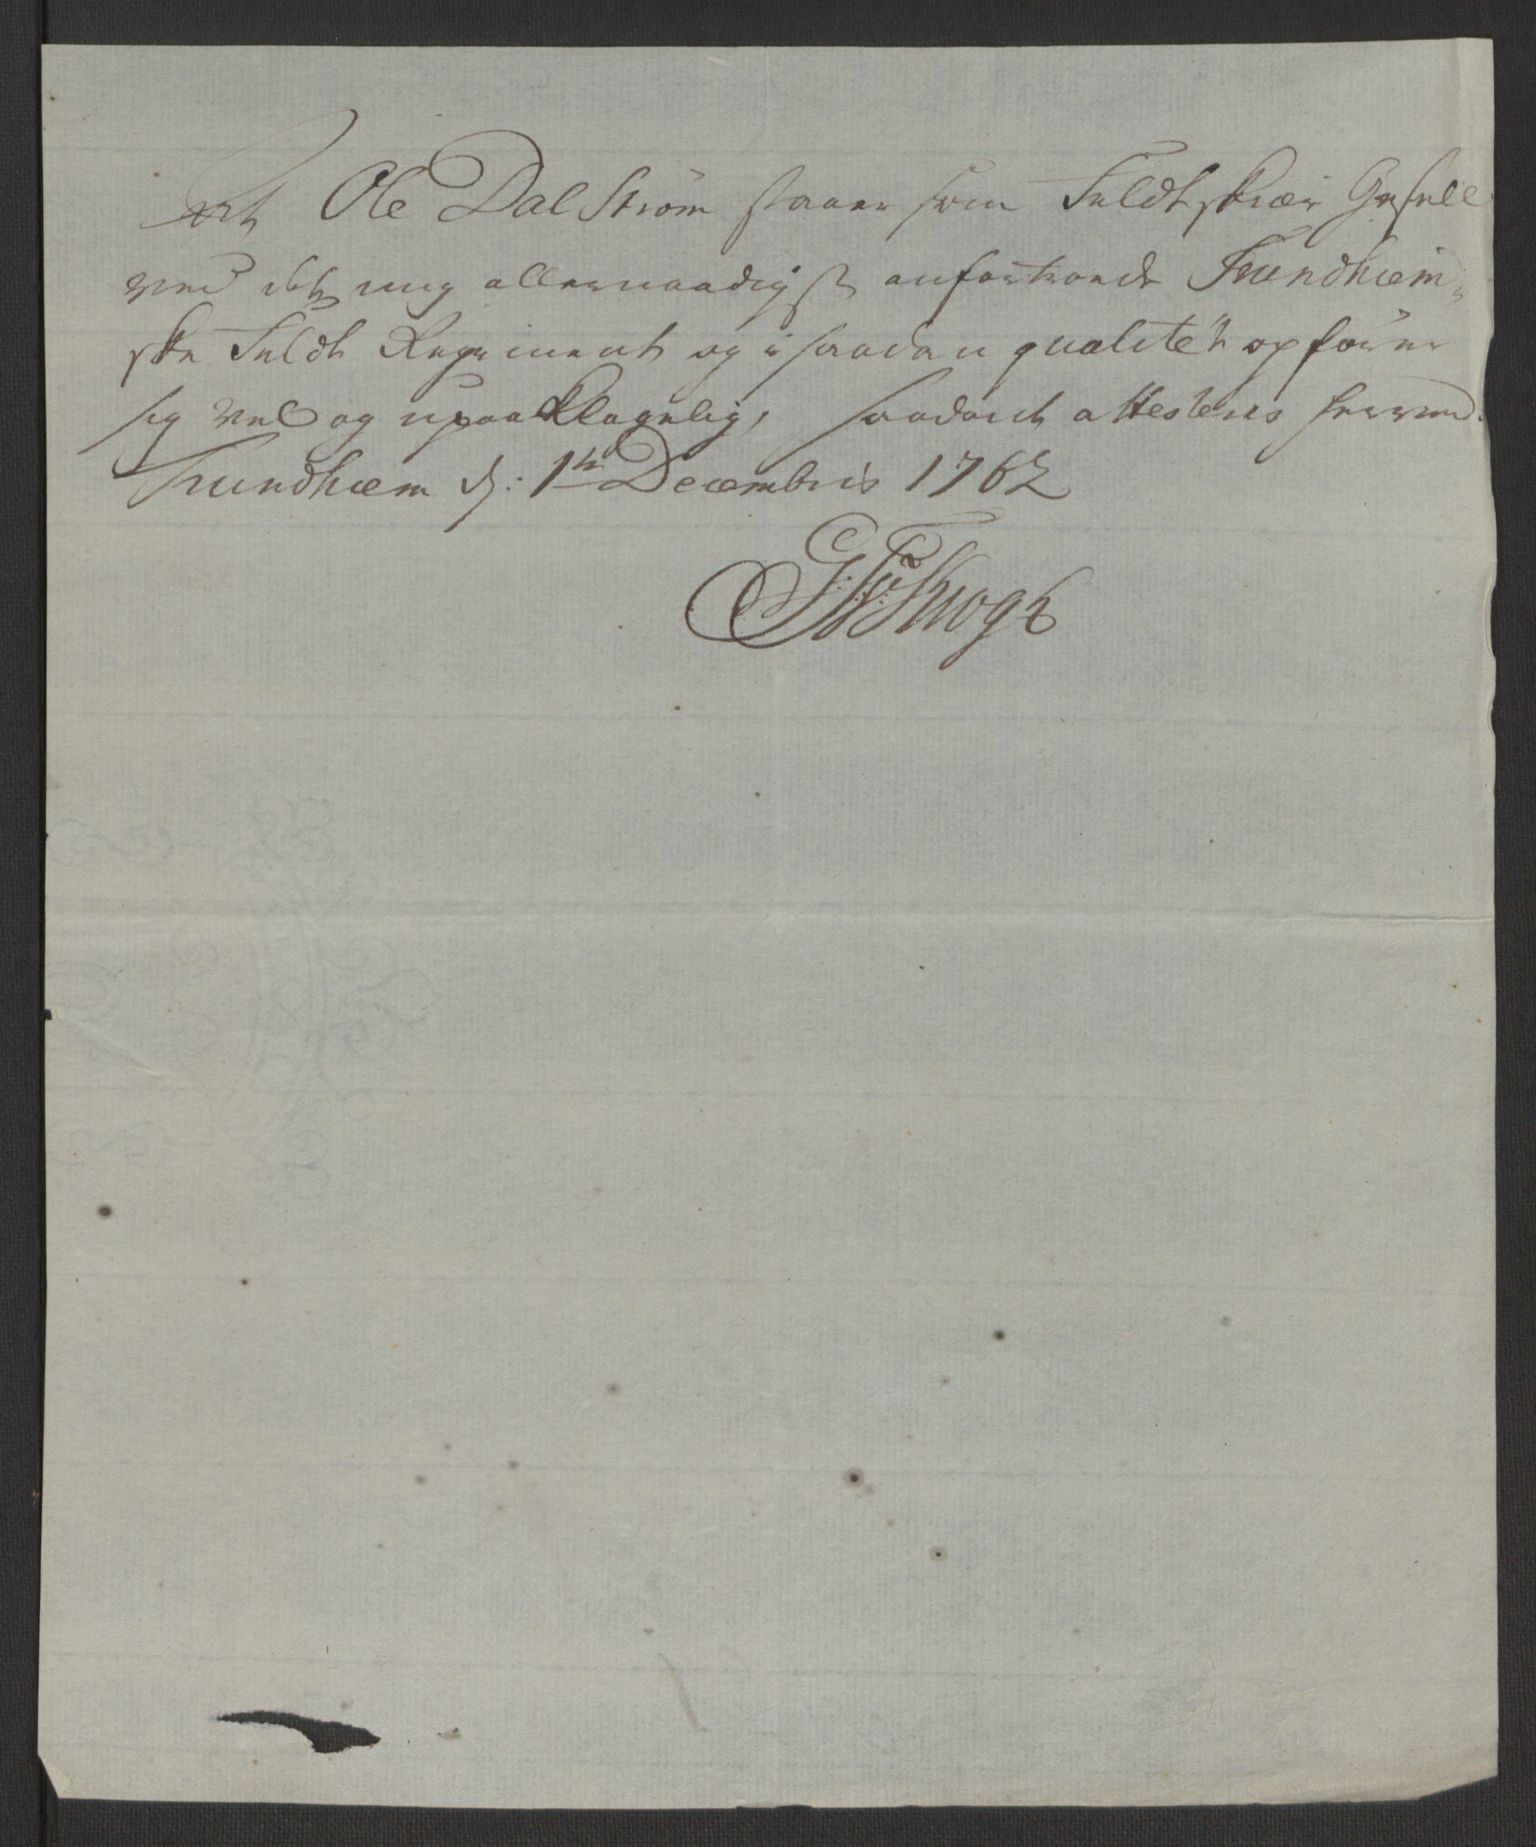 At Ole Dalström staaer som Feldtskiær Gesell
ved det mig allernaadigst anfortroede Trundhiem-
ske Feldt Regiment og i saadan qualitét opförer
sig vel og upaaklagelig, saadant attesteres herved.
Trundhiem d: 1te Decembris 1762
Krogh